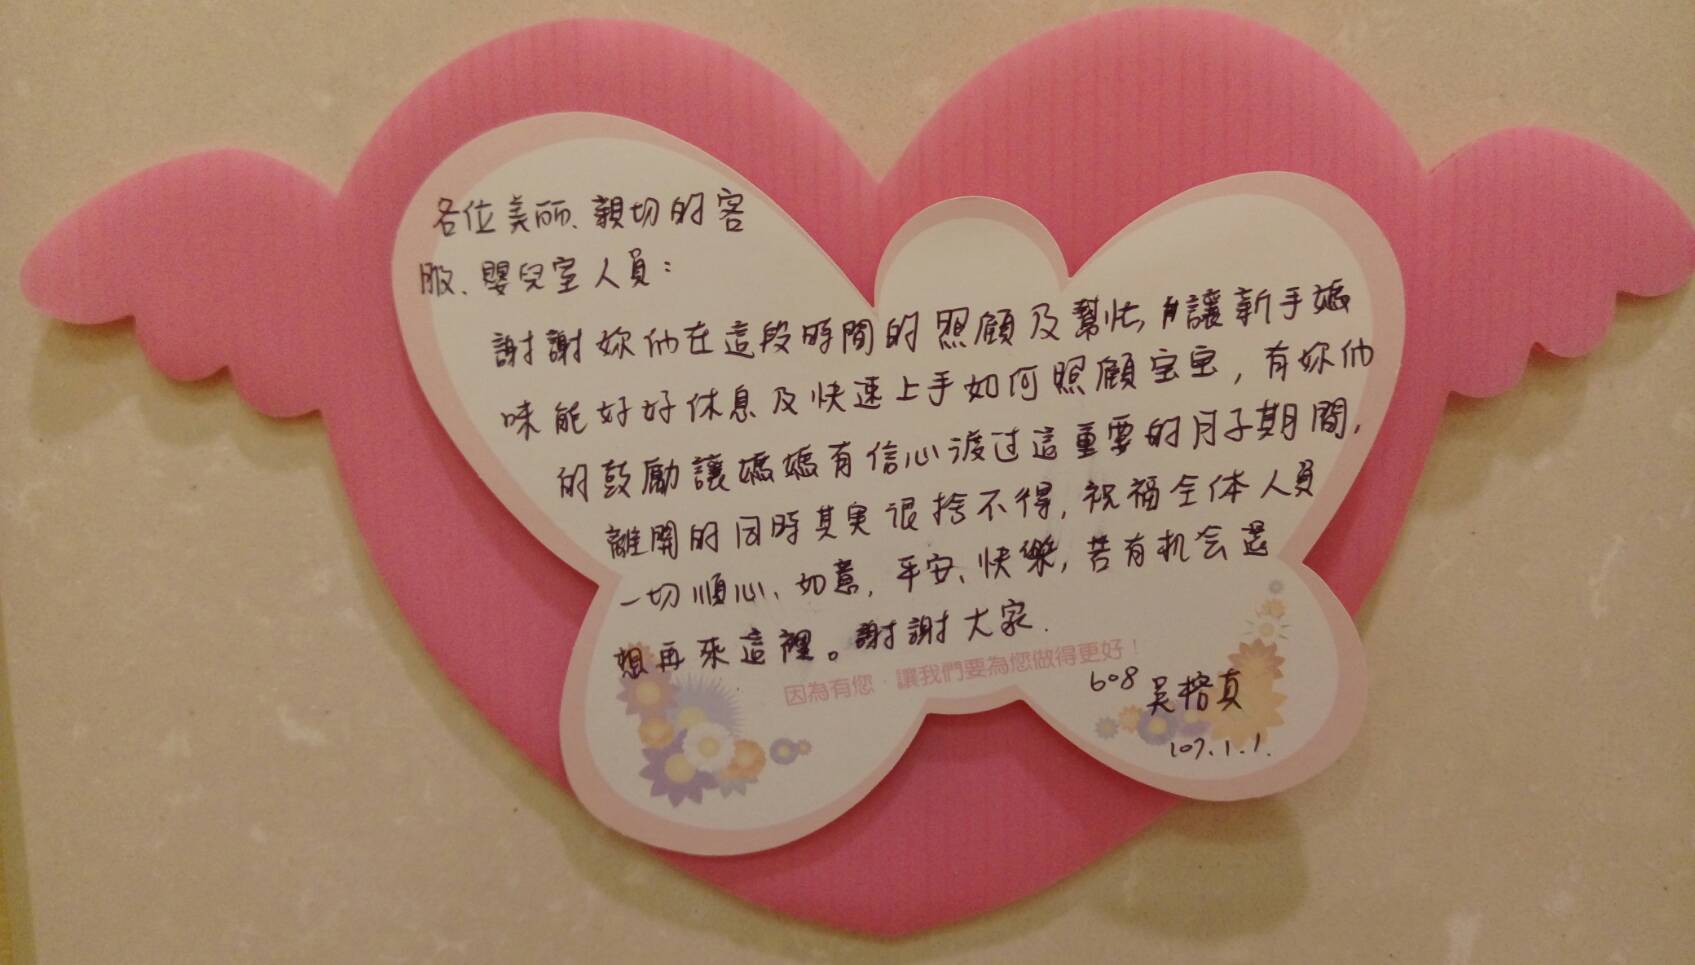 各位美丽、親切的客
服、嬰兒室人員：
謝謝妳们在這段時間的照顧及幫忙,讓新手媽
咪能好好休息及快速上手如何照顧宝宝，有妳们
的鼓勵讓媽媽有信心渡过這重要的月子期間,
離開的同時其実很捨不得,祝福全体人員
一切順心、如意,平安、快樂,若有机会還
想再來這裡。謝謝大家.
因為有您，讓我們要為您做得更好！
608 吳榕真
107.1.1.